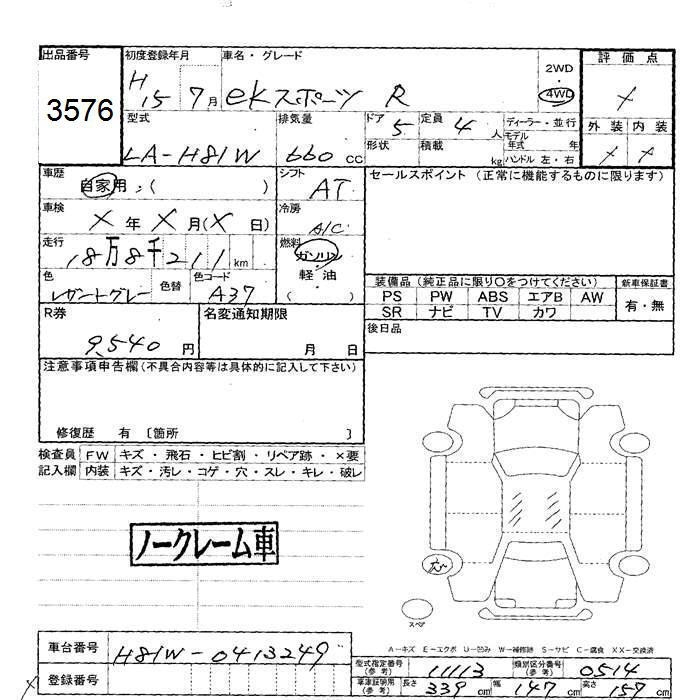 出品番号
3576
初度登録年月
H 15 7月
車名・グレード
ekスポーツ R
2WD
・
4WD
評価点
外装 内装
型式
LA-H81W
排気量
660 cc
ドア 5
形状
定員 4 人
積載 kg
ディーラー・並行
モデル年式 年
ハンドル 左・右
車歴
自家用 :( )
シフト
AT
セールスポイント (正常に機能するものに限ります)
車検
X 年 X 月(X 日)
冷房
A/C
走行
18万8千211 km
燃料
ガソリン
軽油
( )
色
レザントグレー
色替
色コード
A37
装備品 (純正品に限り○をつけてください)
新車保証書
PS PW ABS エアB AW
SR ナビ TV カワ
有・無
R券
9,540 円
名変通知期限
月 日
後日品
注意事項申告欄(不具合内容等は具体的に記入して下さい)
修復歴 有 〔箇所 〕
検査員
記入欄
FW キズ・飛石・ヒビ割・リペア跡・×要
内装 キズ・汚レ・コゲ・穴・スレ・キレ・破レ
ノークレーム車
穴
スペア
A-キズ E-エクボ U-凹み W-補修跡 S-サビ C-腐食 XX-交換済
車台番号
H81W-0413249
登録番号
型式指定番号(参考) 11113 類別区分番号(参考) 0514
車庫証明用(参考) 長さ 339 cm 幅 147 cm 高さ 157 cm